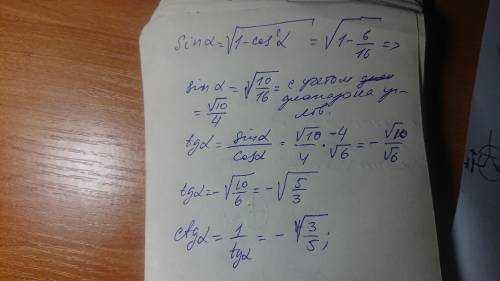 Sinα = √(1-cos²α) = √(1-6/16) =>
sinα = √(10/16) = с учетом
= √10/4 диапазона уг-
лов.
tgα = sinα/cosα = √10/4 · -4/√6 = -√10/√6
tgα = -√(10/6) = -√(5/3)
ctgα = 1/tgα = -√(3/5);